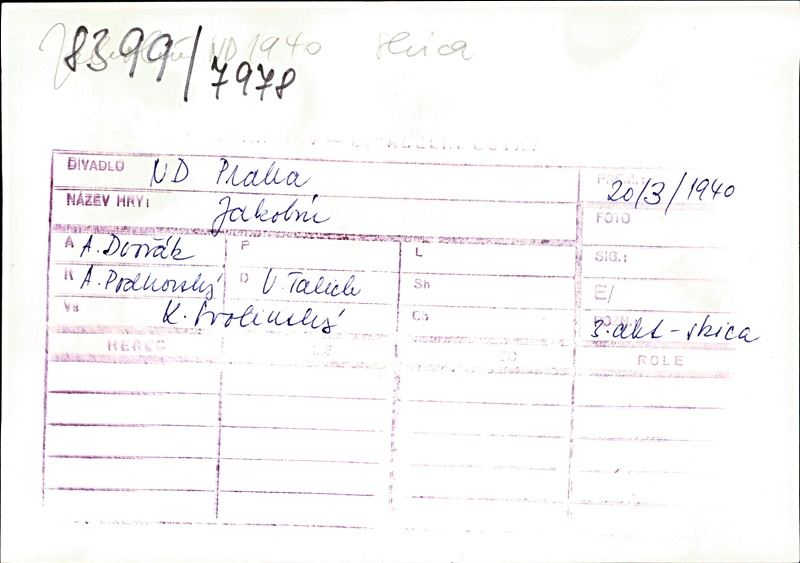 ND 1940 skica
8399/
7978
DIVADLO ND Praha
20/3/1940
NÁZEV HRY: Jakobín
FOTO
A A. Dvořák P L SIG.:
R A. Podhorský D V. Talich Sh E/
Vs K. Svolinský Ch POZN. 3. akt - skica
HEREC ROLE